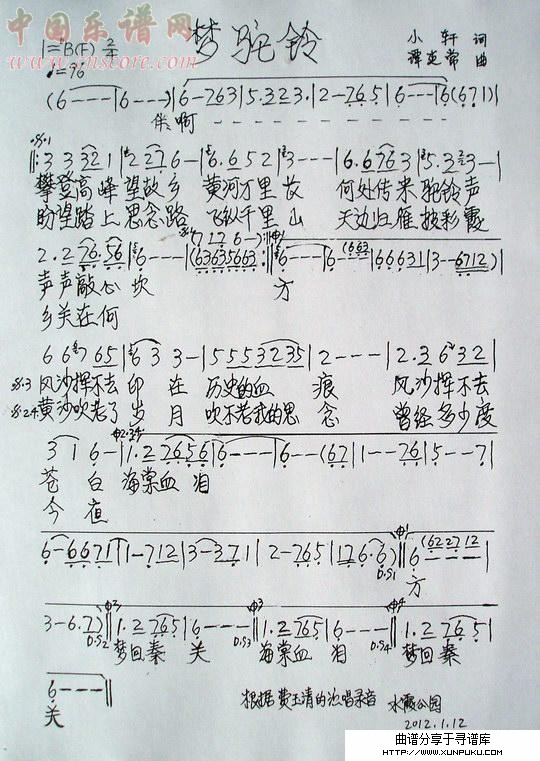 中国乐谱网
www.cnscore.com
梦驼铃
小轩 词
谭建常 曲
1=ᵇB(F) 2/4
♩=76
(6 - - - | 6 - - -) | 6 - 7 6 3 | 5. 3 2 3. | 2 - 7 6 5 | 6 - - - | 6 (6 7 1) |
伴:啊 - - - - - - - -
𝄋.1
‖: 3 3 3 2 1 | 2 2 7 6 - | 6. 6 5 2 | 3 - - - | 6. 6 7 6 3 | 5. 3 2 3 - |
攀登高峰 望故乡 黄河万里长 何处传来驼铃声
盼望踏上 思念路 飞纵千里山 天边归雁披彩霞
2. 2 7 6. 5 6 | 6 - - - | (6 3 6 3 5 6 6 3 :‖ 6 - - - | 6 - (6 6 3 | 6 6 6 3 1 | 3 - - 6 7 1 2) |
声声敲心坎 方
乡关在何
6 6 6 5 | 6 3 3 - | 5 5 5 3 2 3 5 | 2 - - - | 2. 3 6 3 2 |
𝄋.3 风沙挥不去 印在 历史的血痕 风沙挥不去
𝄋.2 4 黄沙吹老了 岁月 吹不老我的思念 曾经多少度
3 1 6 - | 1. 2 7 6 5 6 | 6 - - - | 6 - - (6 7 | 1 - - 7 6 | 5 - - 7 |
苍白 海棠血泪
今宵
6 - 6 6 7 1 | 1 - 7 1 2 | 3 - 3 7 1 | 2 - 7 6 5 | 1 7 6. 6) ‖ 6 - - - |
(6 2 2 7 1 2
D.S1
方
3 - 6. 7) ‖ 1. 2 7 6 5 | 6 - - - ‖ 1. 2 7 6 5 | 6 - - - ‖ 1. 2 7 6 5 |
D.S2 D.S3 D.S4
梦回秦关 海棠血泪 梦回秦
6 - - - ‖
关
根据费玉清的演唱录音
水霞公园
2012.1.12
曲谱分享于寻谱库
WWW.XUNPUKU.COM